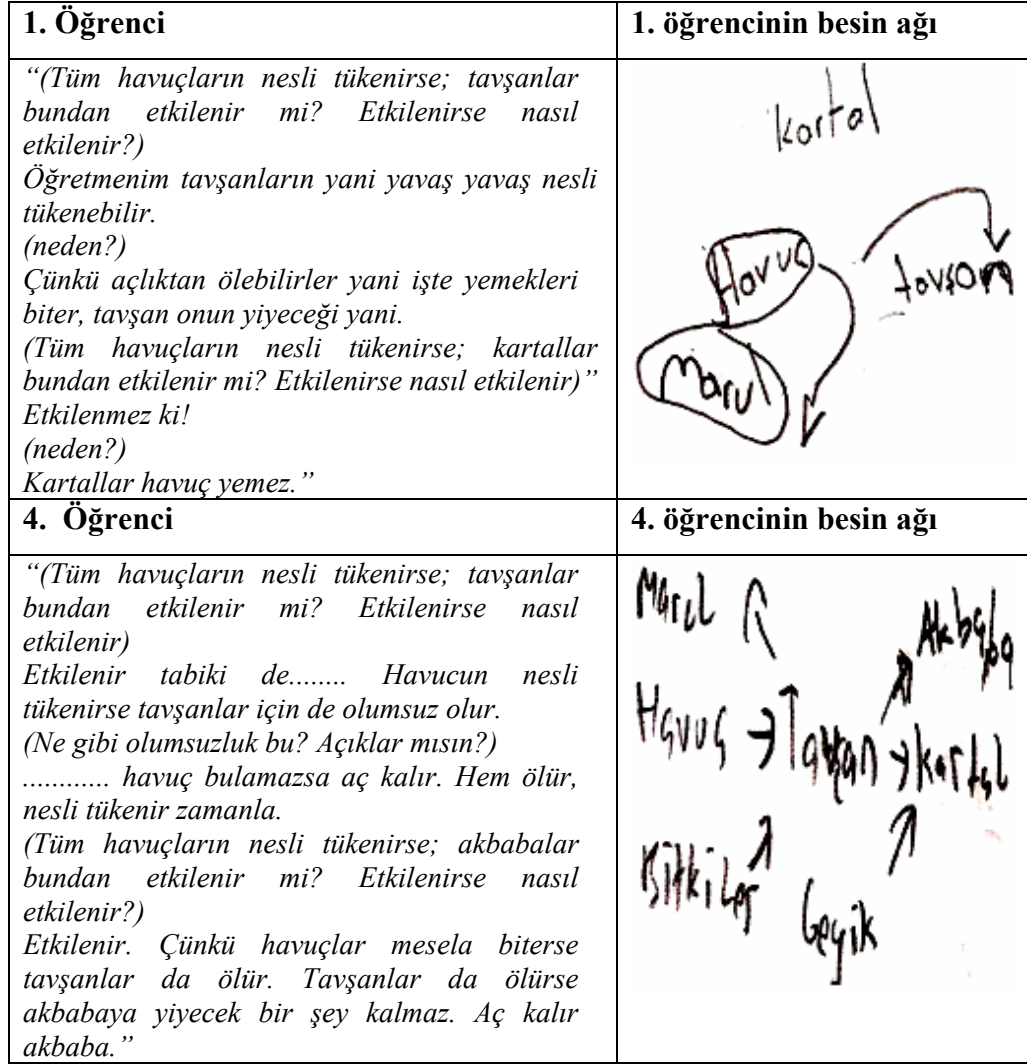 1. Öğrenci
1. öğrencinin besin ağı
“(Tüm havuçların nesli tükenirse; tavşanlar
bundan etkilenir mi? Etkilenirse nasıl
etkilenir?)
Öğretmenim tavşanların yani yavaş yavaş nesli
tükenebilir.
(neden?)
Çünkü açlıktan ölebilirler yani işte yemekleri
biter, tavşan onun yiyeceği yani.
(Tüm havuçların nesli tükenirse; kartallar
bundan etkilenir mi? Etkilenirse nasıl etkilenir)”
Etkilenmez ki!
(neden?)
Kartallar havuç yemez.”
kartal
Havuç
tavşan
Marul
4. Öğrenci
4. öğrencinin besin ağı
“(Tüm havuçların nesli tükenirse; tavşanlar
bundan etkilenir mi? Etkilenirse nasıl
etkilenir)
Etkilenir tabiki de........ Havucun nesli
tükenirse tavşanlar için de olumsuz olur.
(Ne gibi olumsuzluk bu? Açıklar mısın?)
............ havuç bulamazsa aç kalır. Hem ölür,
nesli tükenir zamanla.
(Tüm havuçların nesli tükenirse; akbabalar
bundan etkilenir mi? Etkilenirse nasıl
etkilenir?)
Etkilenir. Çünkü havuçlar mesela biterse
tavşanlar da ölür. Tavşanlar da ölürse
akbabaya yiyecek bir şey kalmaz. Aç kalır
akbaba.”
Marul
Akbaba
Havuç Tavşan kartal
Bitkiler
Geyik